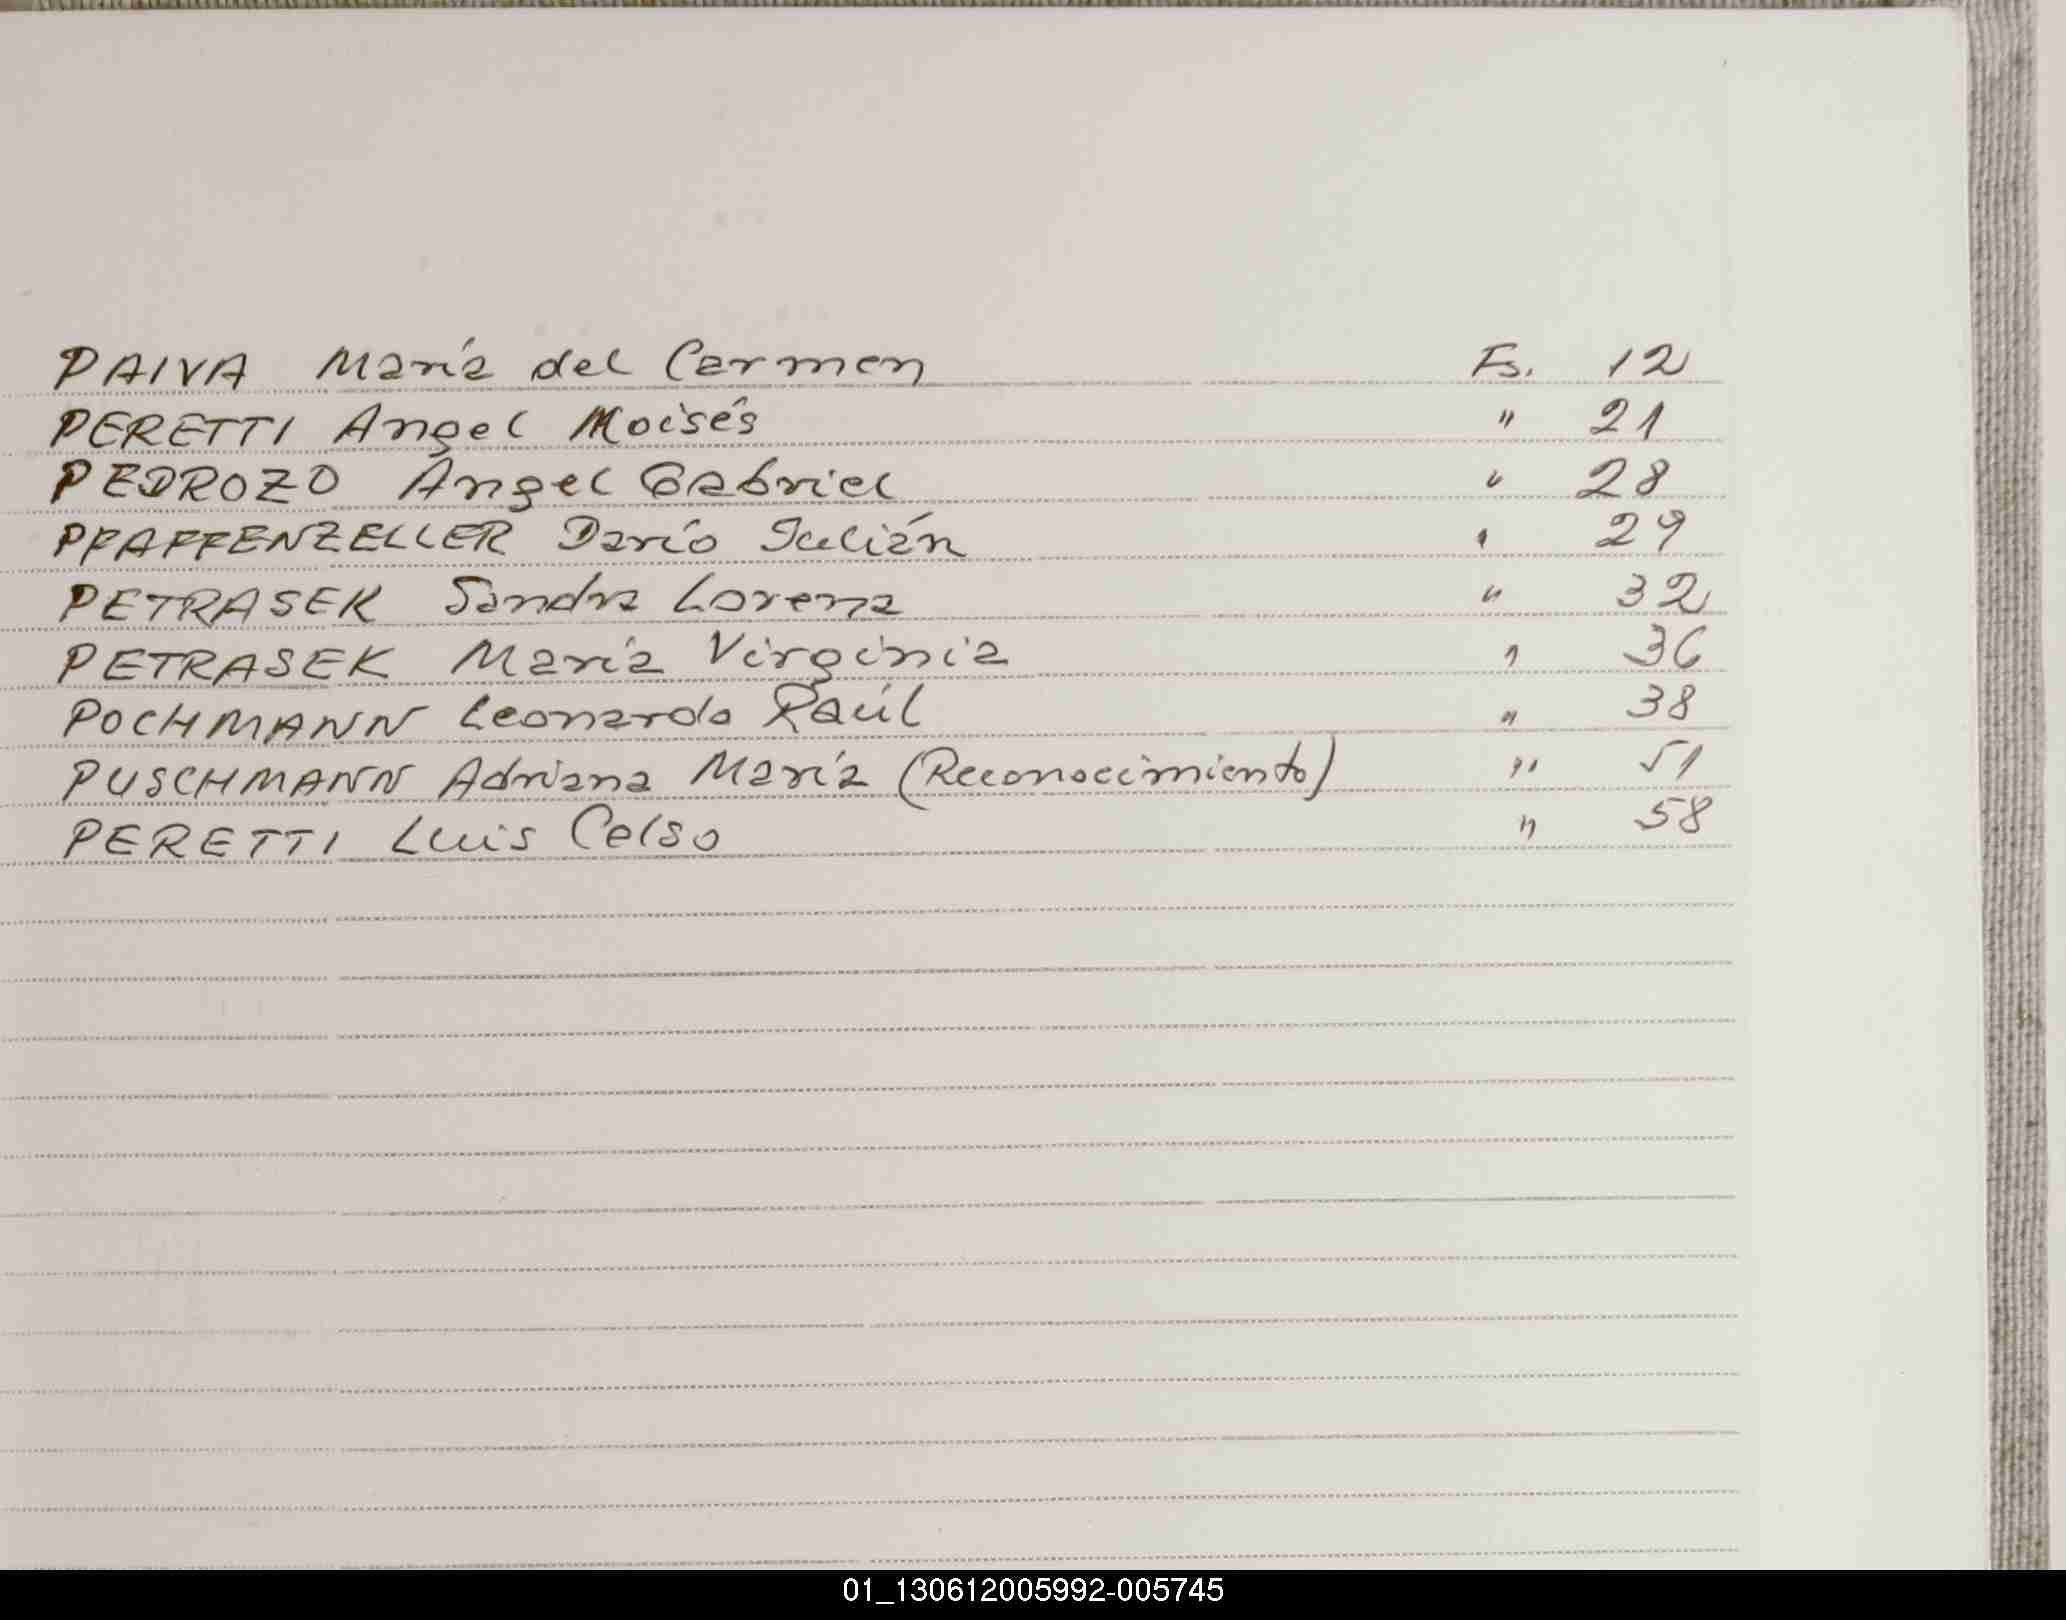 PAIVA María del Carmen Fs. 12
PERETTI Angel Moisés " 21
PEDROZO Ángel Gabriel " 28
PFAFFENZELLER Darío Julián " 29
PETRASEK Sandra Lorena " 32
PETRASEK María Virginia " 36
POCHMANN Leonardo Raúl " 38
PUSCHMANN Adriana María (Reconocimiento) " 51
PERETTI Luis Celso " 58
01_130612005992-005745